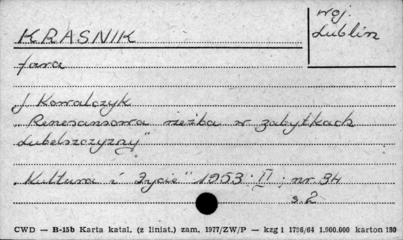 KRAŚNIK
woj.
Lublin
fara
J. Kowalczyk
"Renesansowa rzeźba w zabytkach
Lubelszczyzny"
"Kultura i Życie" 1953 II ; nr. 34
s. 2
CWD — B-15b Karta katal. (z liniat.) zam. 1977/ZW/P — kzg 1 1796/64 1.900.000 karton 180